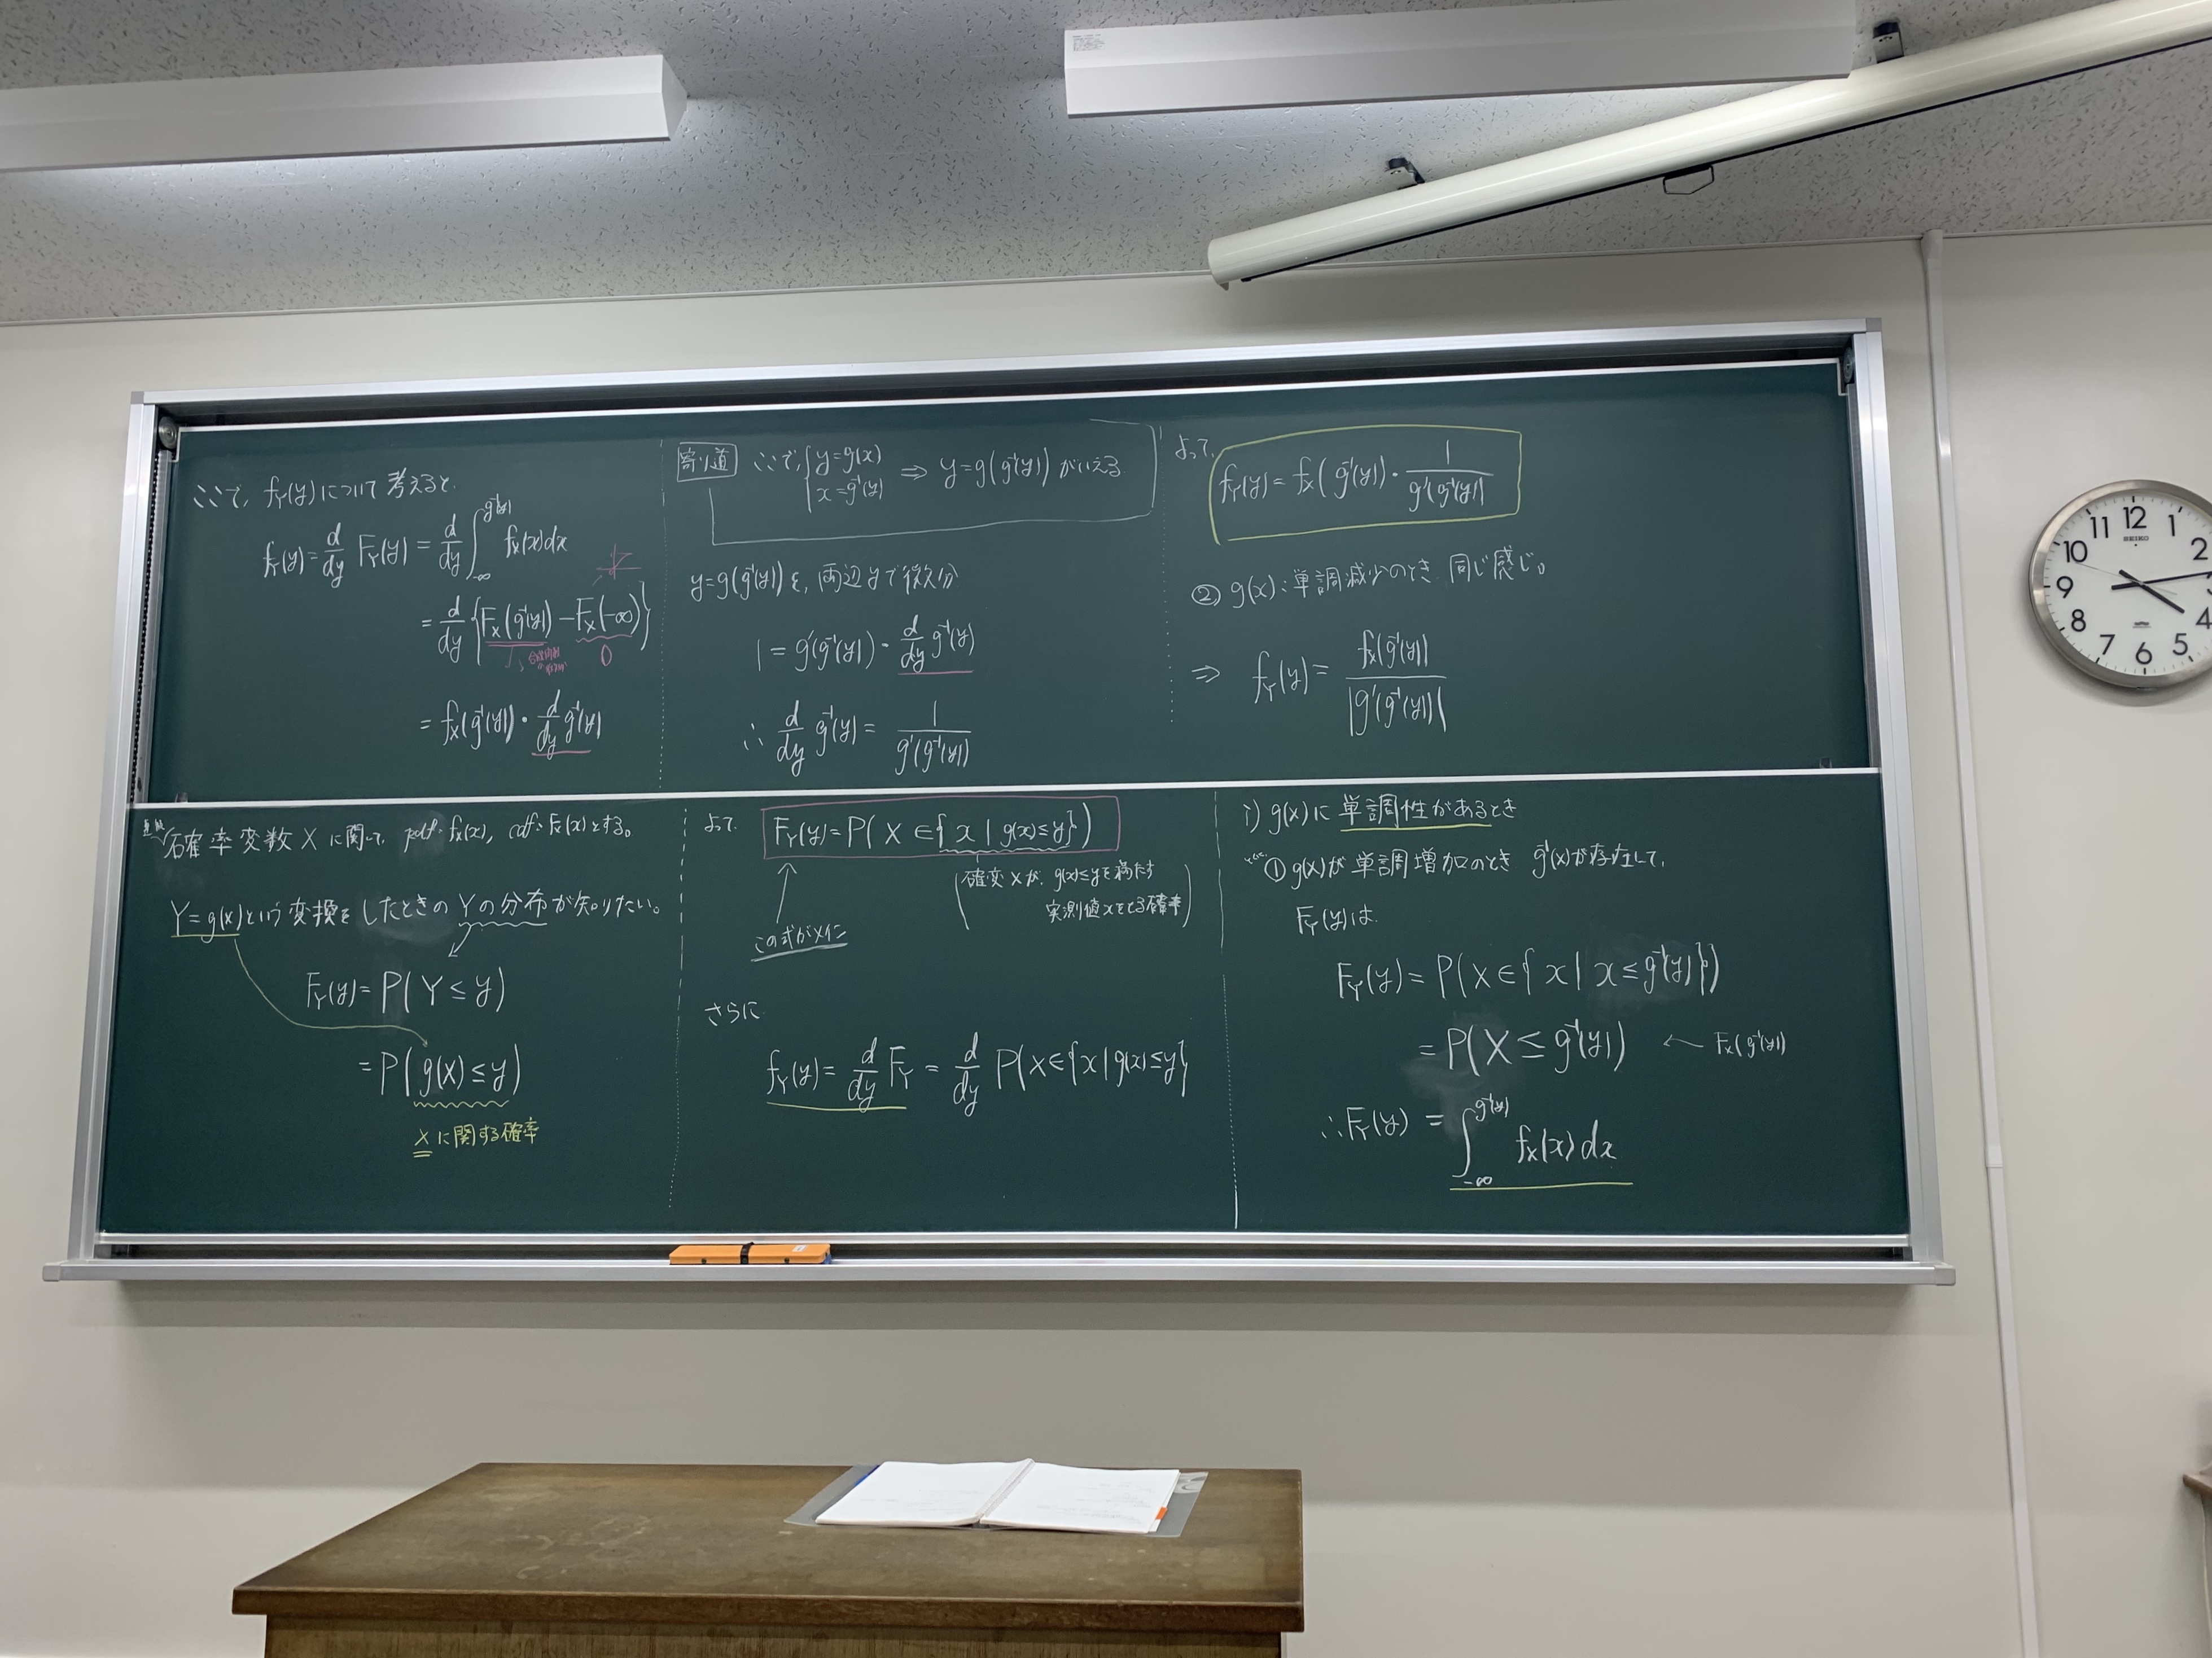 ここで, f_Y(y)について考えると.
f_Y(y) = d/dy F_Y(y) = d/dy ∫_{-∞}^{g^{-1}(y)} f_X(x)dx
= d/dy {F_X(g^{-1}(y)) - F_X(-∞)}
0
= f_X(g^{-1}(y))・d/dy g^{-1}(y)
寄り道 ここで, { y=g(x)
x=g^{-1}(y) ⇒ y=g(g^{-1}(y)) がいえる
y=g(g^{-1}(y))を, 両辺yで微分
1 = g'(g^{-1}(y))・d/dy g^{-1}(y)
∴ d/dy g^{-1}(y) = 1/g'(g^{-1}(y))
よって,
f_Y(y) = f_X(g^{-1}(y))・1/g'(g^{-1}(y))
② g(x):単調減少のとき 同じ感じ。
⇒ f_Y(y) = f_X(g^{-1}(y))/|g'(g^{-1}(y))|
確率変数Xに関して, pdf: f_X(x), cdf: F_X(x)とする。
Y=g(x)という変換をしたときのYの分布が知りたい。
F_Y(y) = P(Y≤y)
= P(g(X)≤y)
Xに関する確率
よって.
F_Y(y) = P(X∈{x|g(x)≤y})
(確変Xが, g(x)≤yを満たす
実測値xをとる確率)
この式がメイン
さらに
f_Y(y) = d/dy F_Y = d/dy P(X∈{x|g(x)≤y}
i) g(x)に単調性があるとき
① g(x)が単調増加のとき g^{-1}(x)が存在して,
F_Y(y)は.
F_Y(y) = P(X∈{x|x≤g^{-1}(y)})
= P(X≤g^{-1}(y)) ← F_X(g^{-1}(y))
∴F_Y(y) = ∫_{-∞}^{g^{-1}(y)} f_X(x)dx
SEIKO
12
1
2
4
5
6
7
8
9
10
11